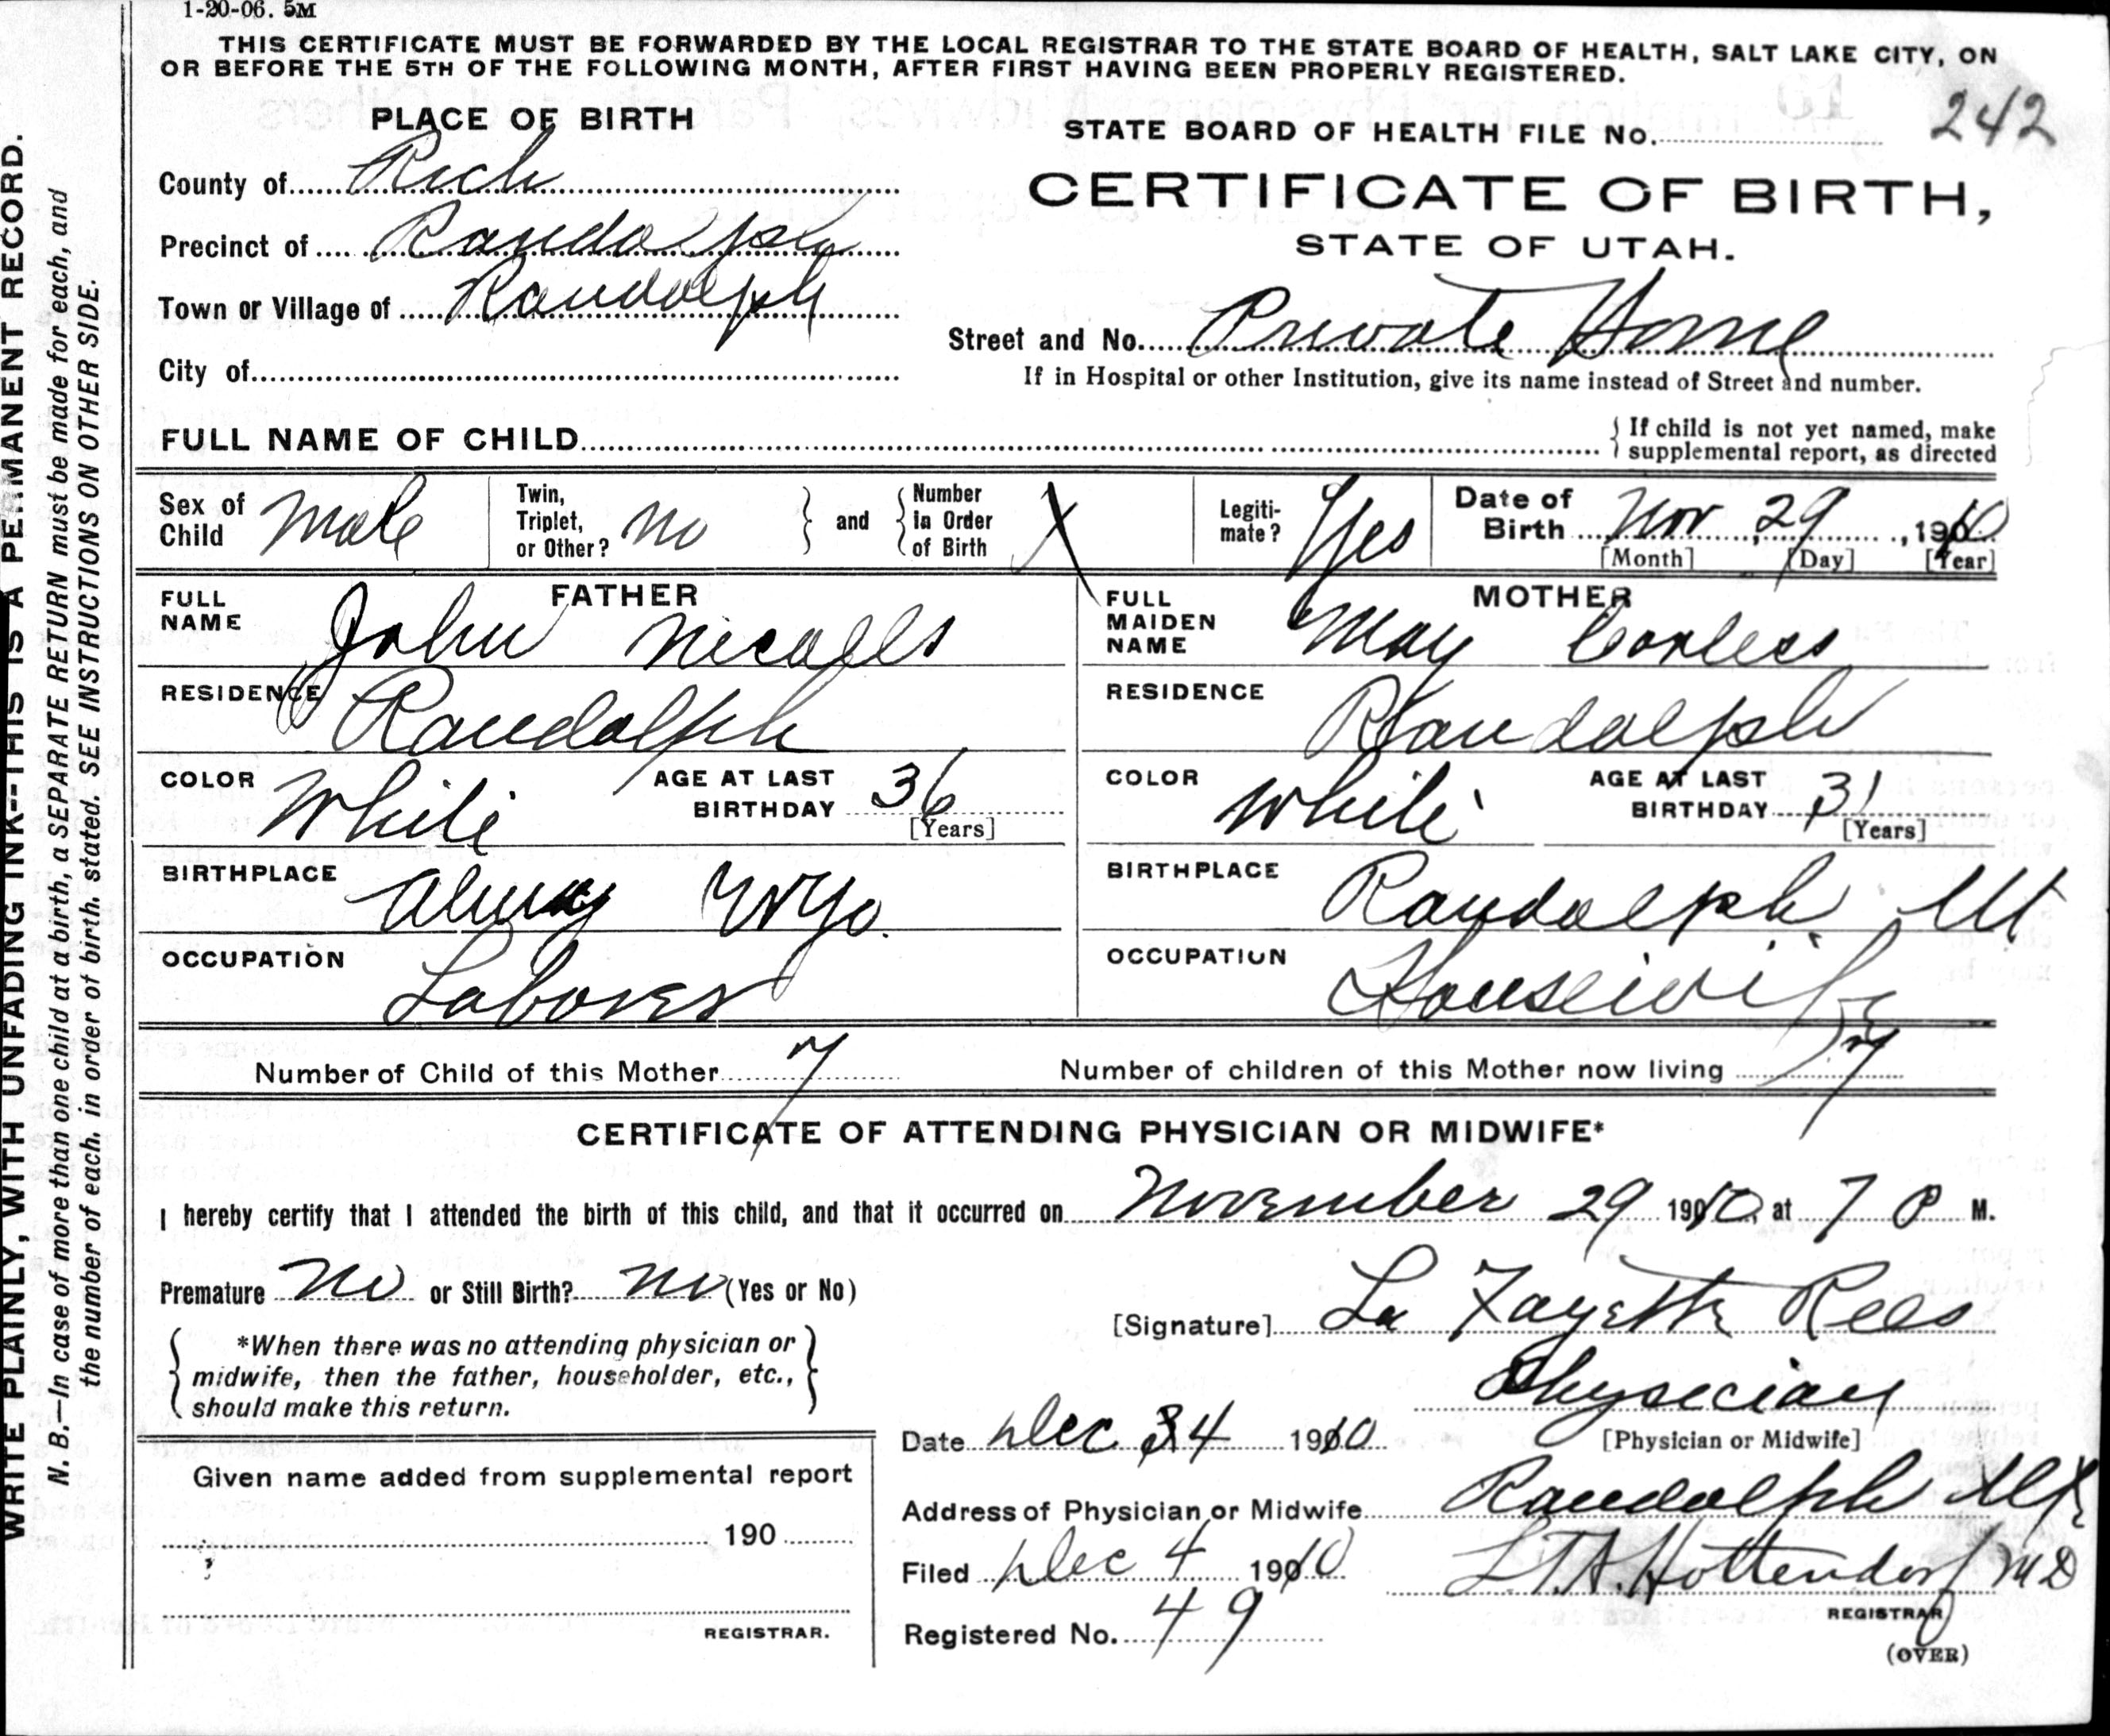 1-20-06. 5M
THIS CERTIFICATE MUST BE FORWARDED BY THE LOCAL REGISTRAR TO THE STATE BOARD OF HEALTH, SALT LAKE CITY, ON
OR BEFORE THE 5TH OF THE FOLLOWING MONTH, AFTER FIRST HAVING BEEN PROPERLY REGISTERED.
PLACE OF BIRTH
STATE BOARD OF HEALTH FILE No. 242
County of Rich
CERTIFICATE OF BIRTH,
Precinct of Randolph
STATE OF UTAH.
Town or Village of Randolph
Street and No. Private Home
City of
If in Hospital or other Institution, give its name instead of Street and number.
FULL NAME OF CHILD
If child is not yet named, make
supplemental report, as directed
Sex of Child Male
Twin, Triplet, or Other? No
and
Number in Order of Birth X
Legiti-mate? Yes
Date of Birth Nov 29, 1910
[Month] [Day] [Year]
FATHER
FULL NAME John
RESIDENCE Randolph
COLOR White
AGE AT LAST BIRTHDAY 36
[Years]
BIRTHPLACE Almy Wyo.
OCCUPATION Laborer
MOTHER
FULL MAIDEN NAME May Corless
RESIDENCE Randolph
COLOR White
AGE AT LAST BIRTHDAY 31
[Years]
BIRTHPLACE Randolph Ut
OCCUPATION Housewife
Number of Child of this Mother 7
Number of children of this Mother now living 7
CERTIFICATE OF ATTENDING PHYSICIAN OR MIDWIFE*
I hereby certify that I attended the birth of this child, and that it occurred on November 29 1910, at 7 P M.
Premature No or Still Birth? No (Yes or No)
[Signature] La Fayette Rees
*When there was no attending physician or
midwife, then the father, householder, etc.,
should make this return.
Physician
[Physician or Midwife]
Date Dec 4 1910
Given name added from supplemental report
190
REGISTRAR.
Address of Physician or Midwife Randolph Ut
Filed Dec 4 1910
L.T.A. Hottendorf MD
REGISTRAR
Registered No. 49
(OVER)
WRITE PLAINLY, WITH UNFADING INK--THIS IS A PERMANENT RECORD.
N. B.—In case of more than one child at a birth, a SEPARATE RETURN must be made for each, and
the number of each, in order of birth, stated. SEE INSTRUCTIONS ON OTHER SIDE.